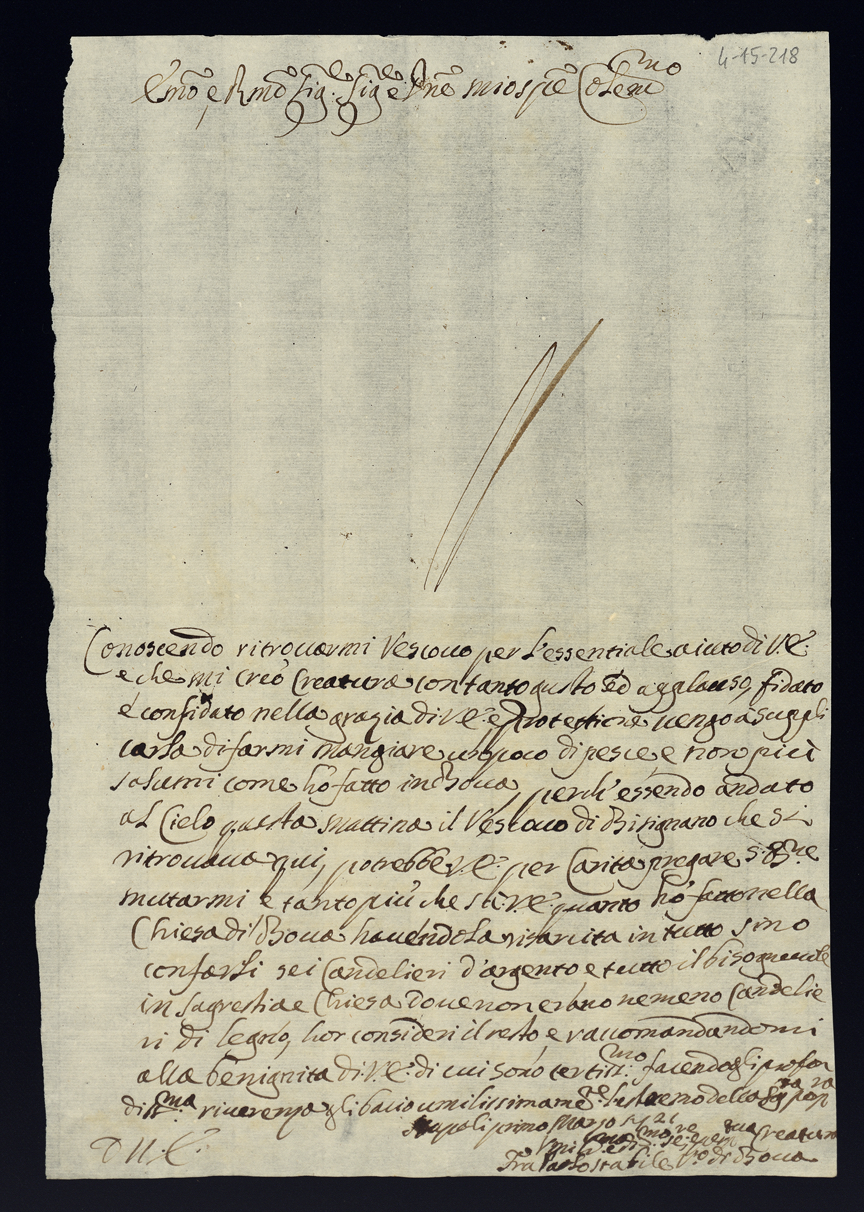 4-15-218
Emo e Rmo Sig. Sig. e Pne mio spre Colemo
Conoscendo ritrovarmi Vescovo per l'essentiale aiuto di V.E.
e che mi creò Creatura con tanto gusto ed applauso, fidato
e confidato nella grazia di V.E. e Protettione vengo a suppli
carla di farmi mangiare un poco di pesce e non più
salumi come hò fatto in Bova, perch'essendo andato
al Cielo questa mattina il Vescovo di Bisignano che si
ritrovava qui, potrebbe V.E. per Carità pregare S. Bne
mutarmi e tanto più che sà V.E. quanto hò fatto nella
Chiesa di Bova havendola risarcita in tutto sino
con farli sei Candelieri d'argento e tutto il bisognevole
in Sagrestia e Chiesa dove non erano nemeno Candelie
ri di legno, hor consideri il resto e raccomandandomi
alla benignità di V.E. di cui sono certissmo facendogli profon
dissma riverenza gli bacio umilissimamte della
Napoli primo Marzo
Creatura
Fra Vo di Bova
D V. E.